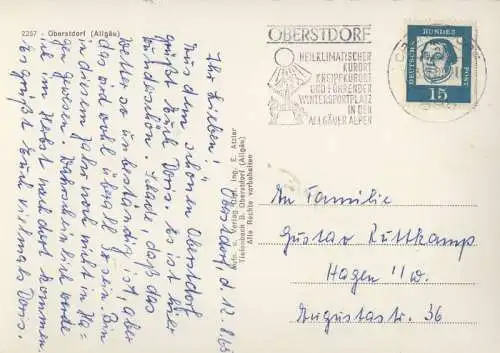 2257 - Oberstdorf (Allgäu)
Oberstdorf, d 12.8.63
Ihr Lieben!
Aus dem schönen Oberstdorf
grüßt Euch Doris. Es ist hier
wunderschön. Schade, daß das
Wetter so unbeständig ist, aber
das wird wohl überall so sein. Bin
in diesem Jahr noch nicht in Ha-
gen gewesen. Wahrscheinlich werde
ich im Herbst nach dort kommen.
Es grüßt Euch vielmals Doris.
Aufn. u. Verlag Dipl. Ing. E. Atzler
Tiefenbach b. Oberstdorf (Allgäu)
Alle Rechte vorbehalten
OBERSTDORF
HEILKLIMATISCHER
KURORT
KNEIPPKURORT
UND FÜHRENDER
WINTERSPORTPLATZ
IN DEN
ALLGÄUER ALPEN
DEUTSCHE
BUNDES
POST
15
An Familie
Gustav Kuttkamp
Hagen i/W.
Augustastr. 36